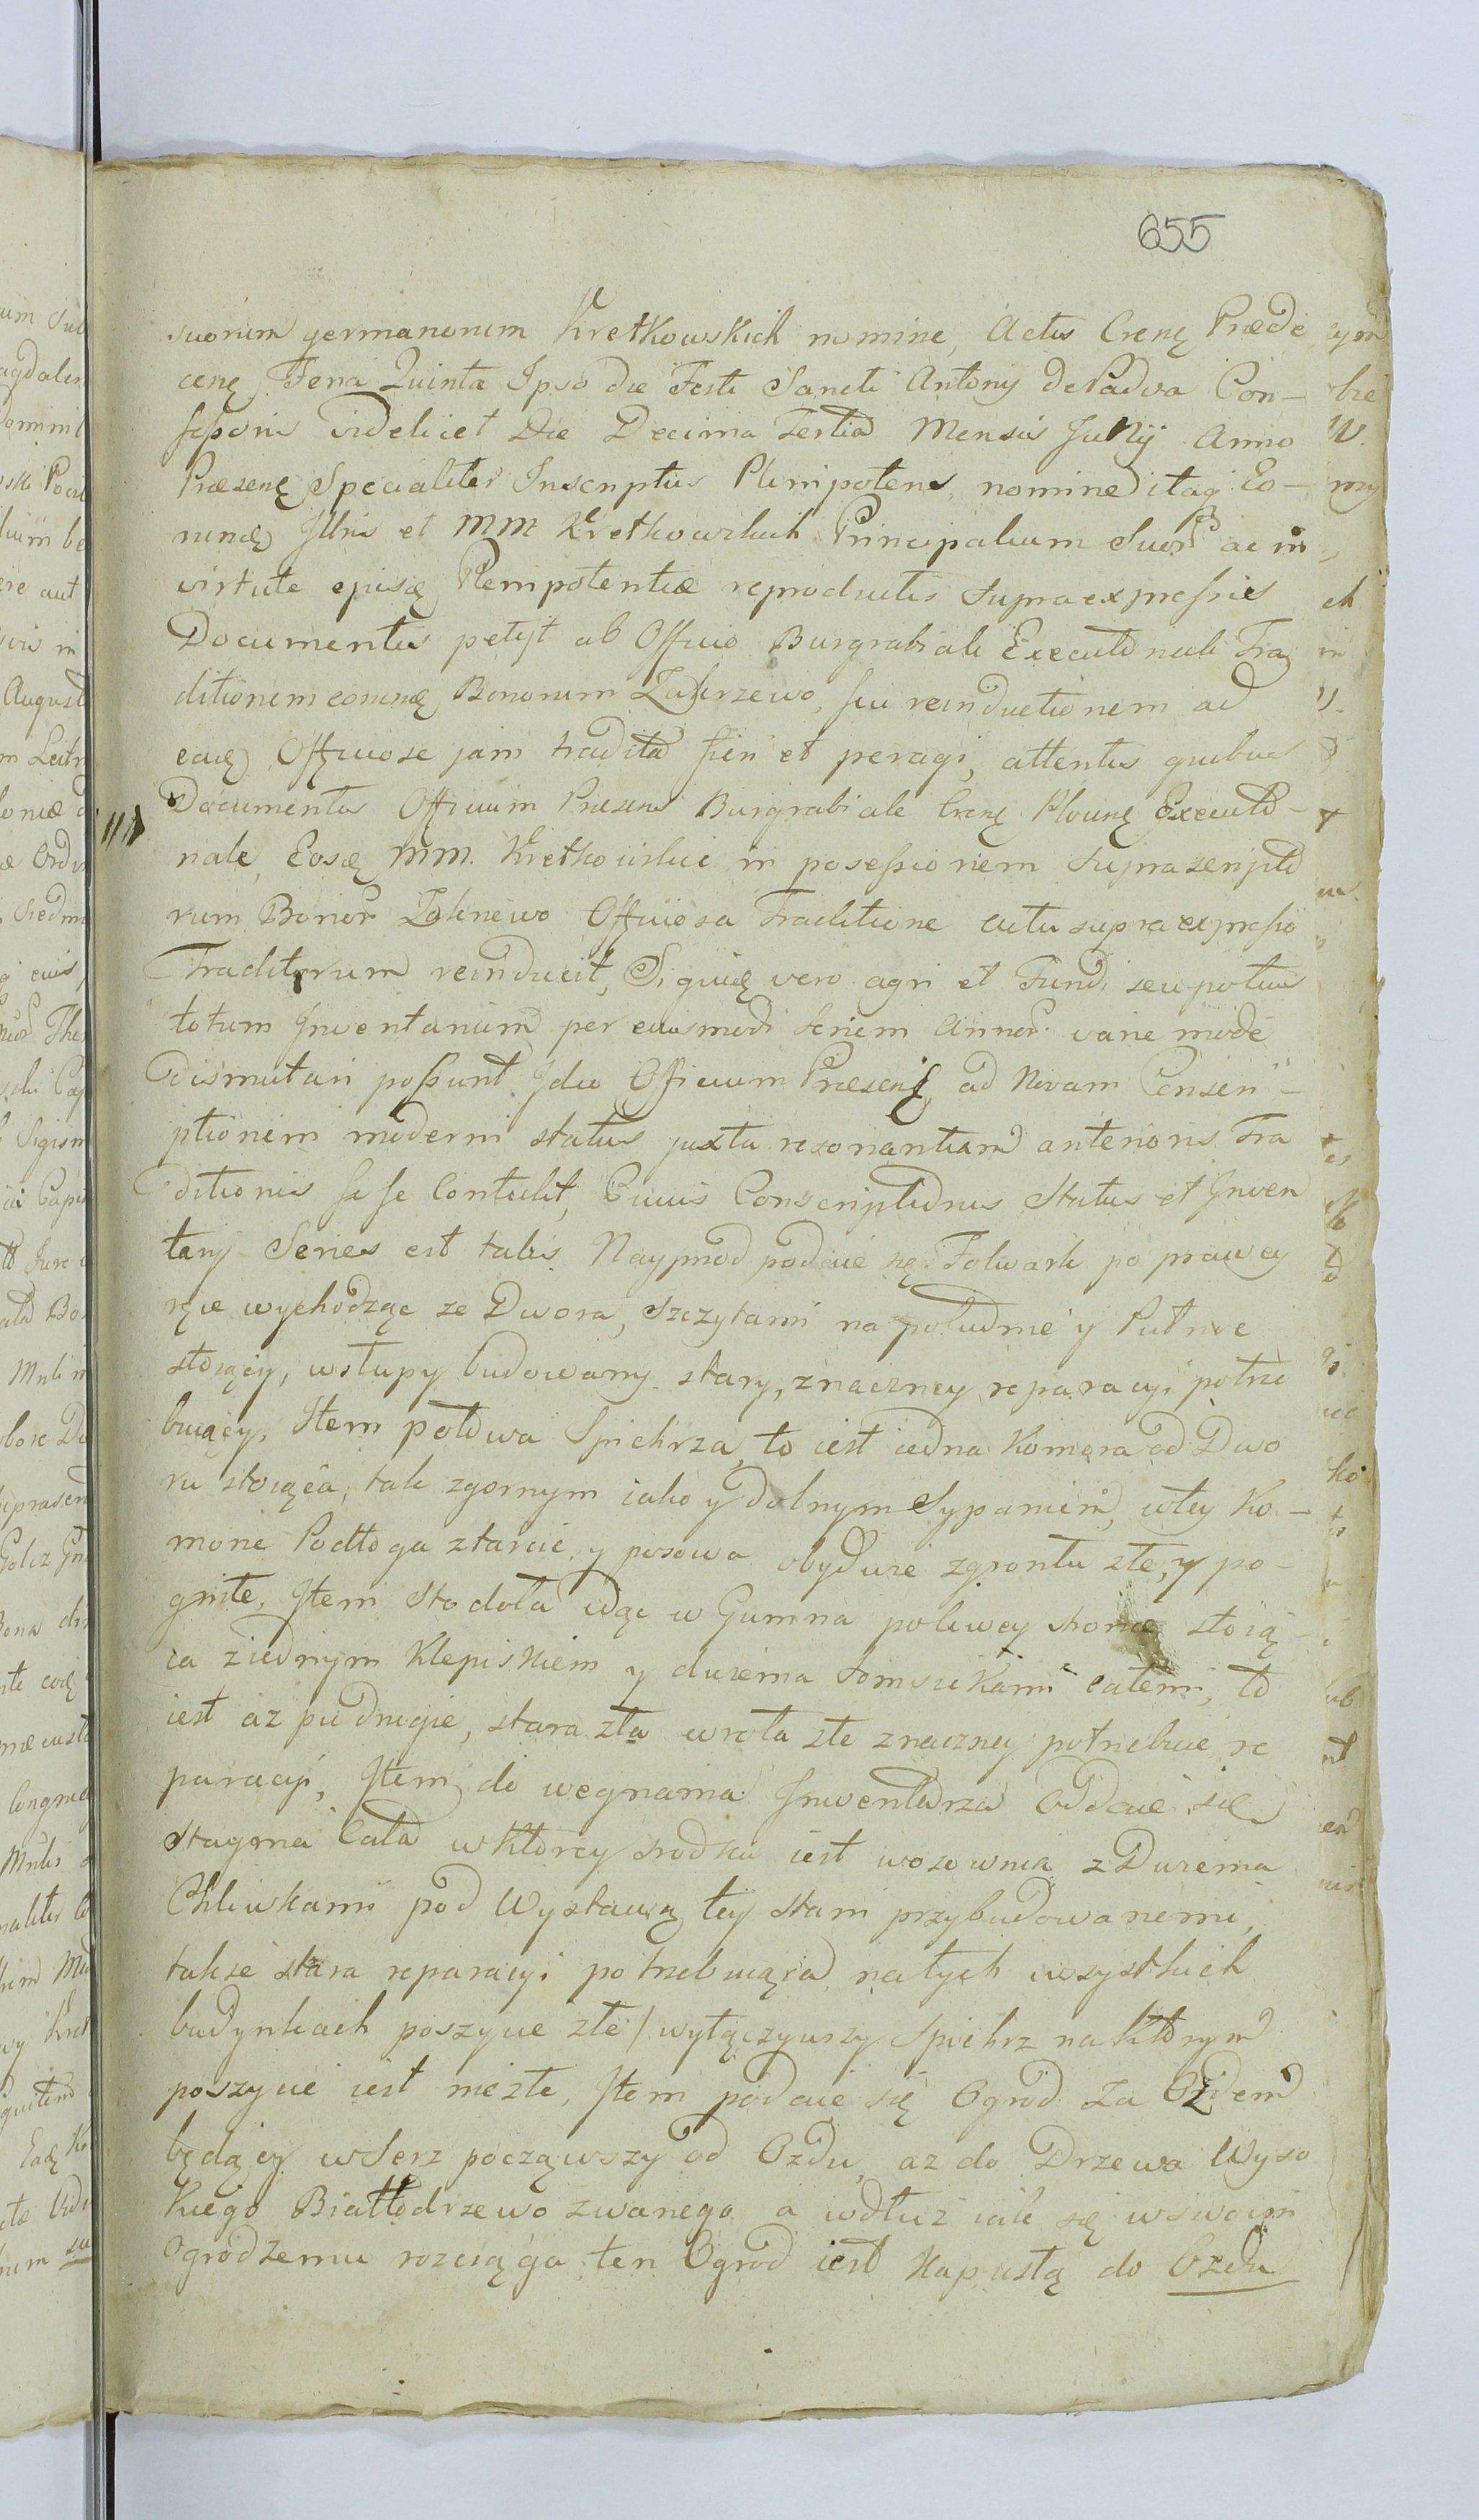 655
suorum germanorum Kretkowskich nomine, Actis Crenę Præde
cenę Feria Quinta Ipso die Festi Sancti Antonij de Padva Con–
feßoris videlicet Die Decima Tertia Mensis Junij Anno
Præsenę Specialiter Inscriptus Plenipotens, nomine itaq Eo–
rundę Illris et MM Kretkowskich Principalium Suor ac in
virtute ejusdę Plenipotentiæ reproductis supra expreßis
Documentis petijt ab Officio Burgrabiali Executionali Tra
ditionem eorundę Bonorum Zakrzewo, seu reinductionem ad
eadę Officiose jam tradita fieri et peragi, attentis quibus
Documentis Officium Præsens Burgrabiale Crenę Plounę Executio–
nale, Eosdę MM. Kretkowskie in poseßionem suprascripto
rum Bonor Zakrzewo Officiosa Traditione actu supra expreßo
Traditorum reinducit, Siquidę vero agri et Fundi seu potius
totum Inventarium per eiusmodi Seriem Annor varie mode
dismutari poßunt Ideo Officium Præsens ad Novam Conscri–
ptionem moderni status juxta resonantiam anterioris Tra
ditionis se se Contulit, Cuius Conscriptionis Status et Inven
tarij Series est talis Nayprzod podaie się Folwark po prawey
ręce wychodząc ze Dwora, Szczytami na południe y Pułnoc
stoiący, wsłupy budowany stary, znaczney reparacyi potrze
buiący, Item połowa Spichrza, to iest iedna Komora od Dwo
ru stoiąca, tak zgornym iako y dolnym Sypaniem, wtey Ko–
morze Podłoga ztarcic y posowa obydwie zgrontu złe, y po–
gniłe, Item Stodoła idąc w Gumna polewey stronie stoią–
ca ziednym Klepiskiem y dwiema Somsiekami całemi, to
iest az pu drugie, stara zła wrota złe znaczney potrzebuie re
paracyi, Item do wegnania Inwentarza Oddaie się
Staynia Cała wktorey srodku iest wozownia z Dwiema
Chliwkami pod Wystawą tey Stani przybudowanemi,
także stara reparacyi potrzebuiąca, natych wszystkich
budynkach poszycie złe / wyłączywszy Spichrz naktorym
poszycie iest niezłe, Item podaie się Ogrod Za Ozdem
będący wSerz począwszy od Ozdu, az do Drzewa Wyso
kiego Białłodrzewo zwanego a wdłuz iak się wswoim
Ogrodzeniu rozciąga ten Ogrod iest Kapustą do Ozdu